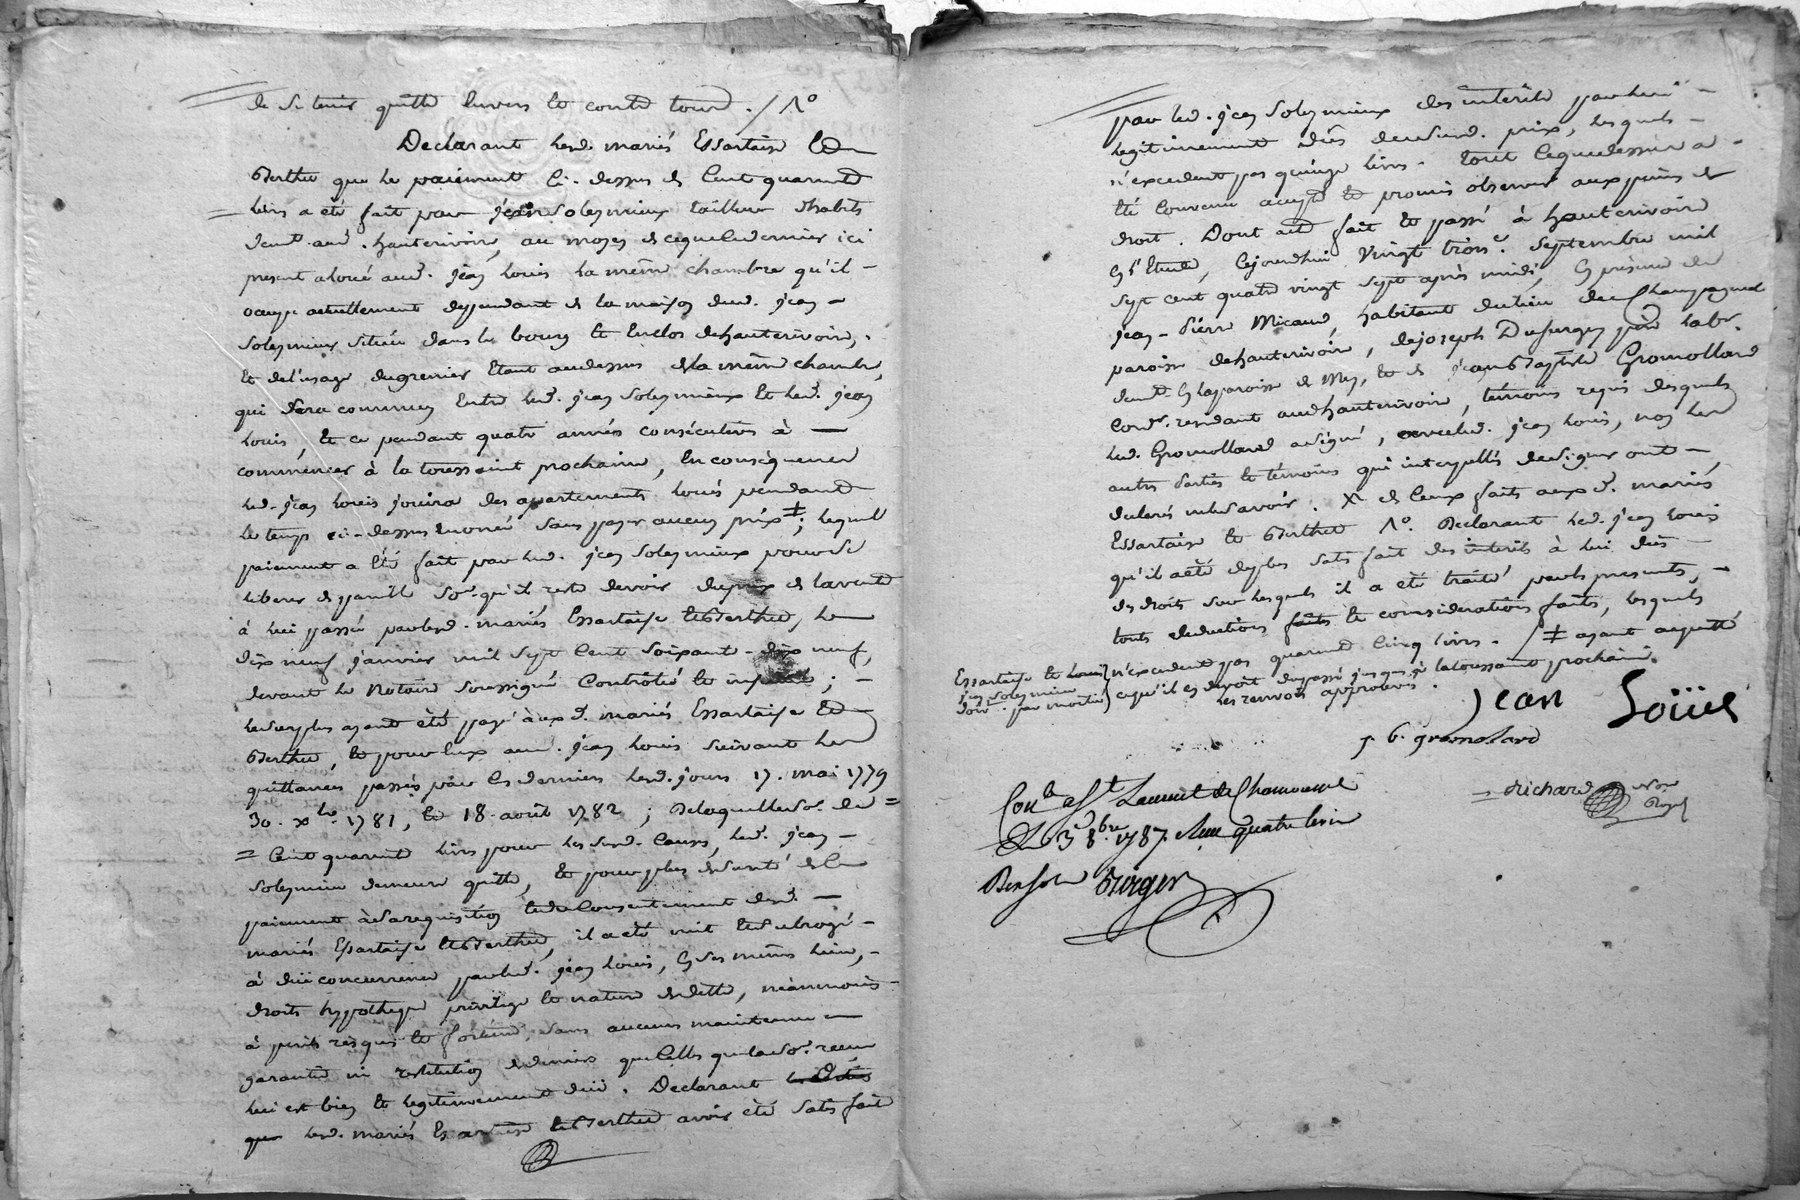 de se tenir quitte envers et contre tous. / 1°
Declarant lesd. mariés Essartaise et
Berthet que le paiement ci-dessus de cent quarante
livs a été fait par jean Solesmieux tailleur d'habits
demt. aud. hauterivoire, au moyen de ce que ce dernier ici
present a loué aud. jean Louis la même chambre qu'il
occupe actuellement deppendant de la maison dud. jean
Solesmieux située dans le bourg et enclos de hauterivoire,
et de l'usage du grenier etant audessus de la même chambre,
qui sera commun entre led. jean Solesmieux et led. jean
Louis, et ce pendant quatre années consécutives à
commencer à la toussaint prochaine, en conséquence
led. jean Louis jouira des apartements loués pendant
le temps ci-dessus enoncé sans payer aucun prix ‡; lequel
paiement a été fait par led. jean Solesmieux pour se
liberer de pareille Soe. qu'il reste devoir du prix de la vente
à lui passée par lesd. mariés Essartaise et Berthet, le
dix neuf janvier mil sept cent soixante-dix neuf,
devant le Notaire soussigné Controlé et insinué;
le surplus ayant été payé auxd. mariés Essartaise et
Berthet, et pour eux aud. jean Louis suivant les
quittances passées par ces derniers lesd. jours 17. mai 1779
30. xbre. 1781, et 18. août 1782; De laquelle Soe. de
= cent quarante livs pour les susd. causes, led. jean
Solesmieux demeure quitte, et pour plus de sureté de ce
paiement à sa requisition et du consentement desd.
mariés Essartaise et Berthet, il a été mis et subrogé
à düe concurrence par led. jean Louis, en ses mêmes lieu,
droits hypotheque privilege et nature de dette, néanmoins
à perils risques et fortune, sans aucune maintenue
garantie ni restitution de deniers que celle que lad. Soe.
lui est bien et legitimement düe. Declarant
que lesd. mariés Essartaise et Berthet avoir été satisfait
par led. jean Solesmieux des intérêts
legitimement dûs de susd. prix, lesquels
n'excedent pas quinze livs. tout ce que dessus a
été convenu accepté et promis observer aux peines de
droit. Dont acte fait et passé à hauterivoire
en l'Etude, cejourdhui vingt trois e. septembre mil
sept cent quatre vingt sept après midi, en présence de
jean-Pierre Micaud, habitant du lieu de Champagne
paroisse de hauterivoire, de joseph Dufurgey labr.
demt. en la paroisse de Mey, et de jean Baptiste Gromollard
Cordr. residant aud. hauterivoire, témoins requis desquels
led. Gromollard a signé, avec led. jean Louis, non les
autres parties et témoins qui interpellés de signer ont
declaré ne le savoir. X de ceux faits auxd. mariés
Essartaise et Berthet 1°. Declarant led. jean Louis
qu'il a été de plus satisfait des intérêts à lui dûs
des droits sur lesquels il a été traité par les presents,
touts deductions faites et considerations faites, lesquels
n'excedent pas quarante cinq livrs. / ‡ ayant aquitté
Essartaise et Louis
jean Solesmieux
doiv. par moitié
ce qu'il en devoit du passé jusques à la toussaint prochaine.
les renvois approuvés.
Jean Loüis
j. b. gromolard
Richard Nore
Royal
Conlé à St Laurent de Chamousset
le 3 8bre 1787. Reçu quatre